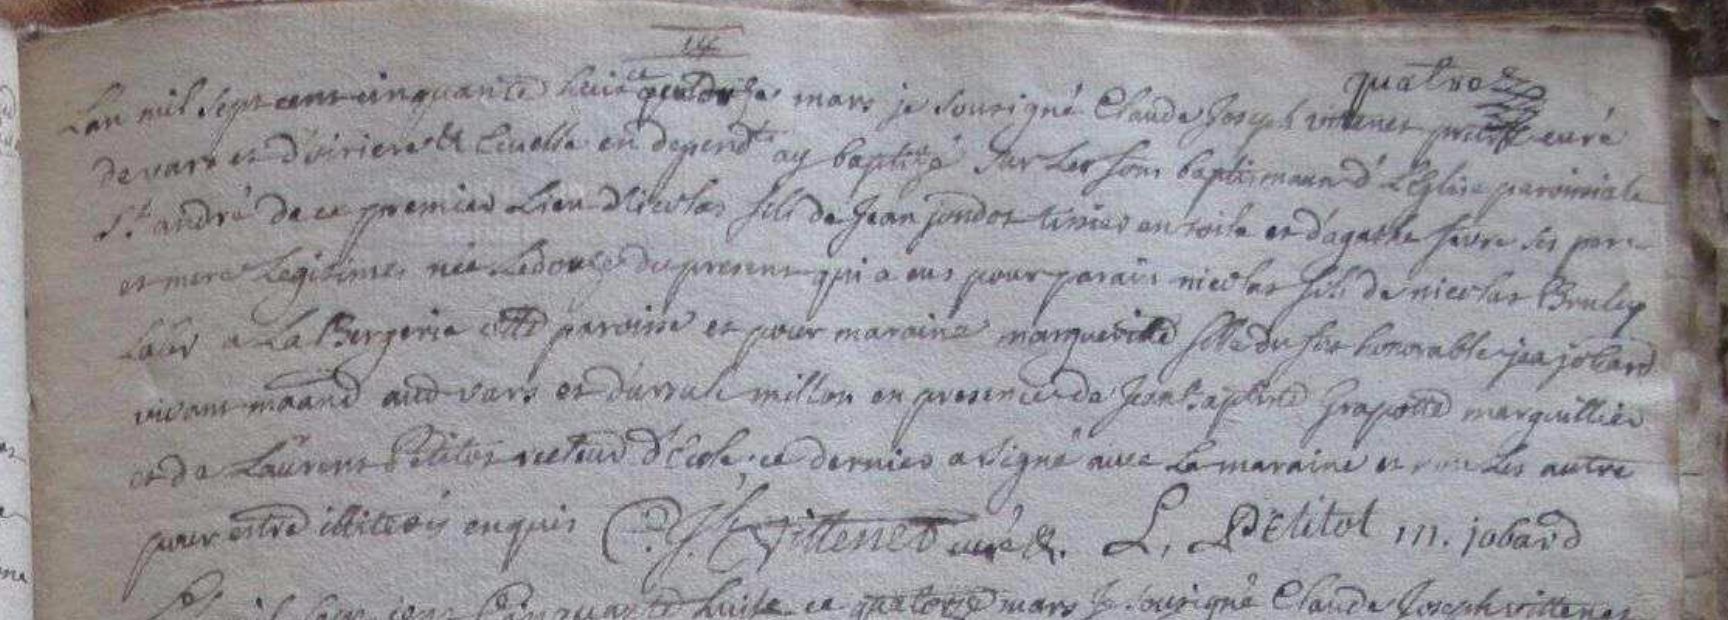 14
quatroz
Lan mil sept cent cinquante huit ce quatorze mars je sousigné Claude Joseph vittenet prêtre curé
de vars et d'ecirieres & Cuvelle en depend^t ay baptizé sur les fons baptismaux d L'Eglise paroissiale
S^t andré de ce premier Lieu Nicolas fils de Jean jondot tissier en toile et d'agathe fevre ses pere
et mere Legitimes née Ledouze du present qui a eus pour parain nicolas fils de nicolas Bruley
Lab^r a La Bergerie ditte paroisse et pour maraine marguerite fille du fut honorable jea jobard
vivant m^{and} aud vars et d'ursule millon en presence de Jean baptiste Grapotte marguillier
et de Laurens Petitot recteur d'Ecole. ce dernier a signé avec La maraine et non Les autre
pour estre illiterés enquis C. J. Vittenet curé &. L. Petitot m. jobard
cent Cinquante huite ce quatorze mars Je sousigné Claude Joseph vittenet